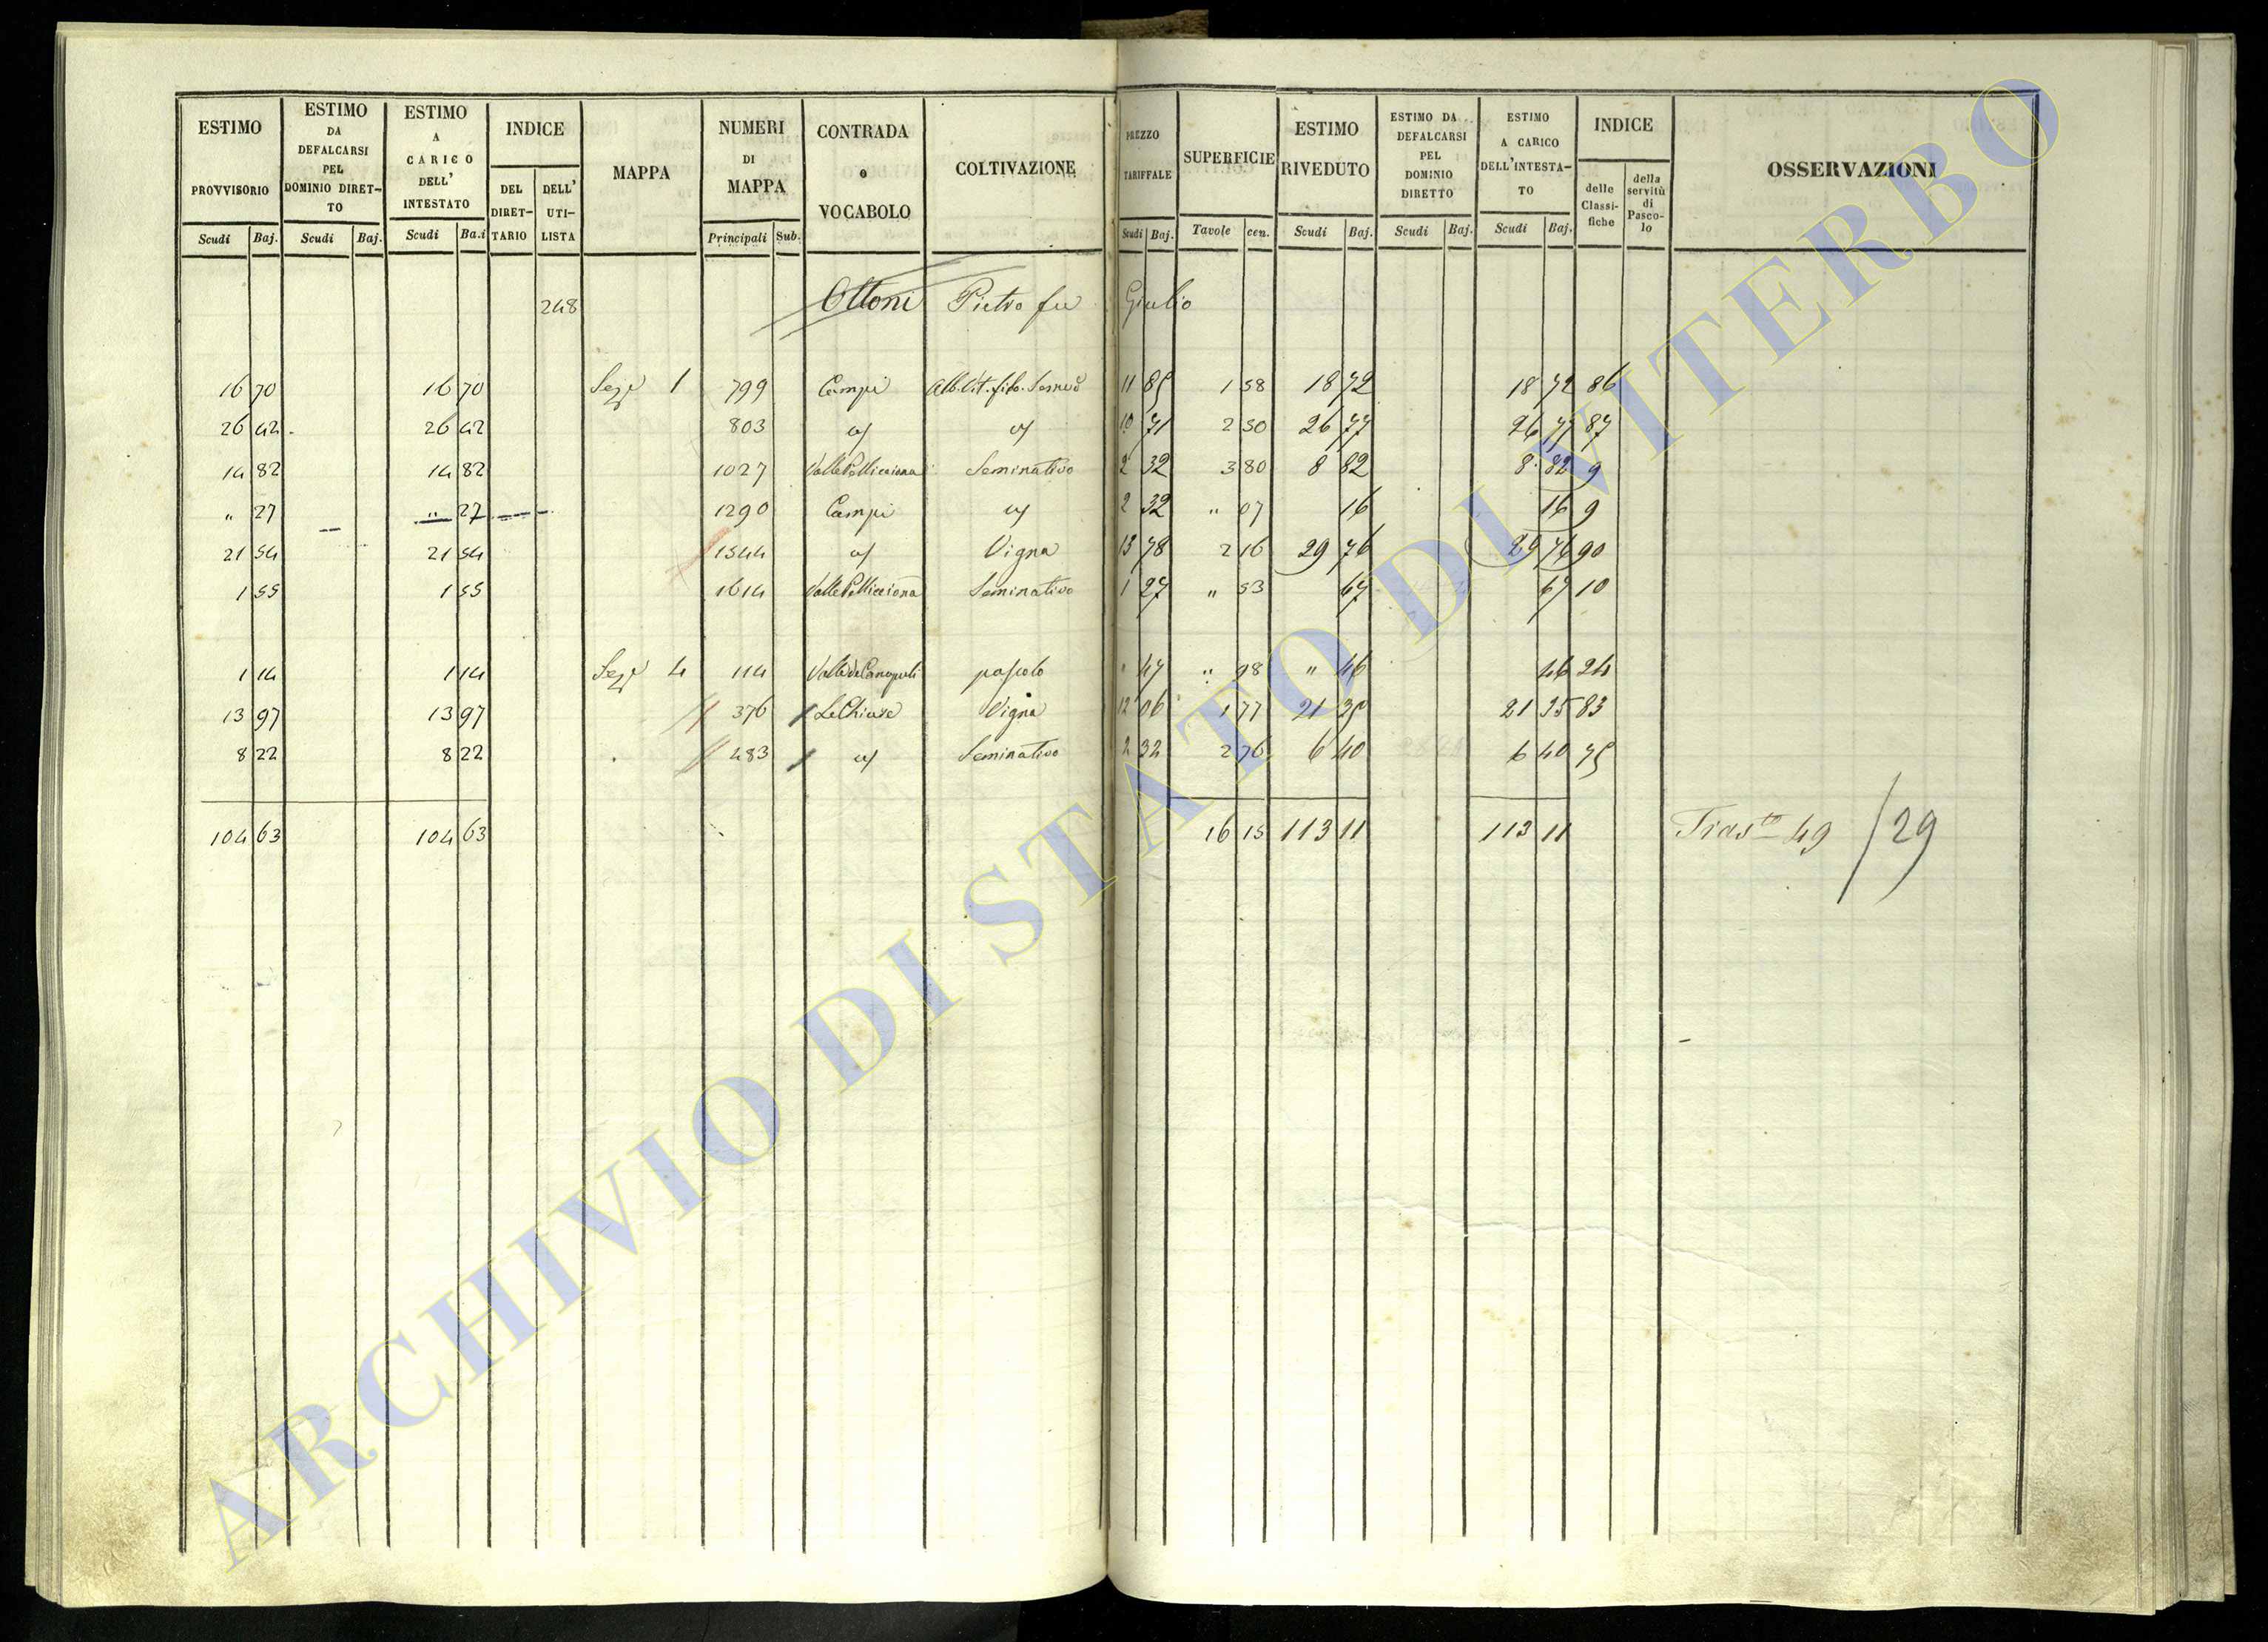 ESTIMO PROVVISORIO
ESTIMO DA DEFALCARSI PEL DOMINIO DIRET-TO
ESTIMO A CARICO DELL' INTESTATO
INDICE
DEL DIRET-TARIO
DELL' UTI-LISTA
MAPPA
NUMERI DI MAPPA
CONTRADA o VOCABOLO
COLTIVAZIONE
PREZZO TARIFFALE
SUPERFICIE
ESTIMO RIVEDUTO
ESTIMO DA DEFALCARSI PEL DOMINIO DIRETTO
ESTIMO A CARICO DELL'INTESTA-TO
INDICE
delle Classi-fiche
della servitù di Pasco-lo
OSSERVAZIONI
Scudi Baj. Scudi Baj. Scudi Ba.i Principali Sub. Scudi Baj. Tavole cen. Scudi Baj. Scudi Baj. Scudi Baj.
248 Ottoni Pietro fu Giulio
16 70 16 70 Sez.e 1 799 Campi 11 85 1 58 18 72 18 72 86
26 42 26 42 803 10 71 2 50 26 77 26 77 87
14 82 14 82 1027 Valle Pellicciona Seminativo 2 32 3 80 8 82 8 82 9
" 27 " 27 1290 Campi 2 32 " 07 16 16 9
21 54 21 54 1544 Vigna 13 78 2 16 29 76 29 76 90
1 55 1 55 1614 Valle Pellicciona Seminativo 1 27 " 53 67 67 10
1 14 1 14 Sez.e 4 114 pascolo " 47 " 98 " 46 46 24
13 97 13 97 376 Le Chiuse Vigna 12 06 1 77 21 35 21 35 83
8 22 8 22 483 Seminativo 2 32 2 76 6 40 6 40 75
104 63 104 63 16 15 113 11 113 11 Trasto 49 / 29
ARCHIVIO DI STATO DI VITERBO